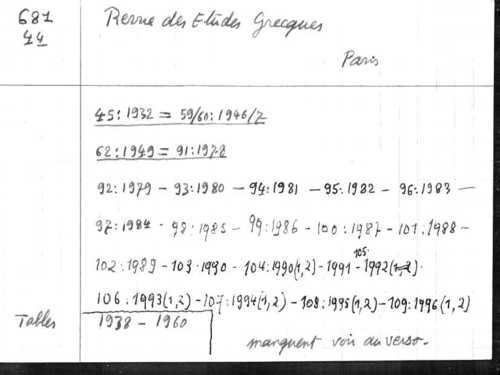 681
44
Revue des Etudes Grecques
Paris
45:1932 = 59/60:1946/7
62:1949 = 91:1978
92:1979 - 93:1980 - 94:1981 - 95:1982 - 96:1983 -
97:1984 - 98:1985 - 99:1986 - 100:1987 - 101:1988 -
102:1989 - 103:1990 - 104:1990(1,2) - 1991 - 105:1992(1,2).
106:1993(1,2) - 107:1994(1,2) - 108:1995(1,2) - 109:1996(1,2)
Tables 1938 - 1960
manquent voir au verso.